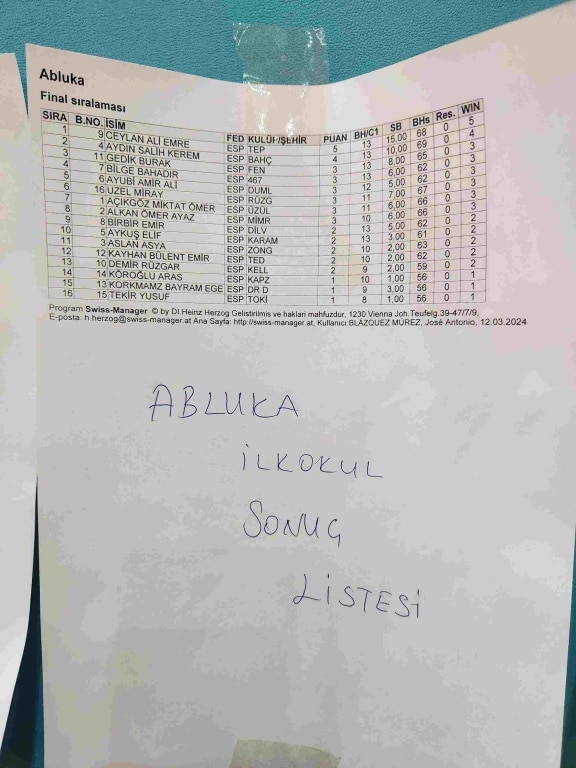 Abluka
Final sıralaması
SIRA B.NO. İSİM FED KULÜP/ŞEHİR PUAN BH/C1 SB BHs Res. WIN
1 9 CEYLAN ALİ EMRE ESP TEP 5 13 15,00 68 0 5
2 4 AYDIN SALİH KEREM ESP BAHÇ 4 13 10,00 69 0 4
3 11 GEDİK BURAK ESP FEN 3 13 8,00 65 0 3
4 7 BİLGE BAHADIR ESP 467 3 13 6,00 62 0 3
5 6 AYUBİ AMİR ALİ ESP DUML 3 12 5,00 62 0 3
6 16 UZEL MİRAY ESP RÜZG 3 11 7,00 67 0 3
7 1 AÇIKGÖZ MİKTAT ÖMER ESP ÜZÜL 3 11 6,00 66 0 3
8 2 ALKAN ÖMER AYAZ ESP MİMR 3 10 6,00 66 0 3
9 8 BİRBİR EMİR ESP DİLV 2 13 62 0 2
10 5 AYKUŞ ELİF ESP KARAM 2 13 3,00 61 0 2
11 3 ASLAN ASYA ESP ZONG 2 10 2,00 63 0 2
12 12 KAYHAN BÜLENT EMİR ESP TED 2 10 2,00 62 0 2
13 10 DEMİR RÜZGAR ESP KELL 2 9 2,00 59 0 2
14 14 KÖROĞLU ARAS ESP KAPZ 1 10 1,00 56 0 1
15 13 KORKMAMZ BAYRAM EGE ESP DR D 1 9 3,00 56 0 1
16 15 TEKİR YUSUF ESP TOKİ 1 8 1,00 56 0 1
Program Swiss-Manager © by DI.Heinz Herzog Gelistirilmis ve haklari mahfuzdur, 1230 Vienna Joh.Teufelg.39-47/7/9,
E-posta: h.herzog@swiss-manager.at Ana Sayfa: http://swiss-manager.at, Kullanıcı:BLÁZQUEZ MÚREZ, José Antonio, 12.03.2024
ABLUKA
İLKOKUL
SONUÇ
LİSTESİ